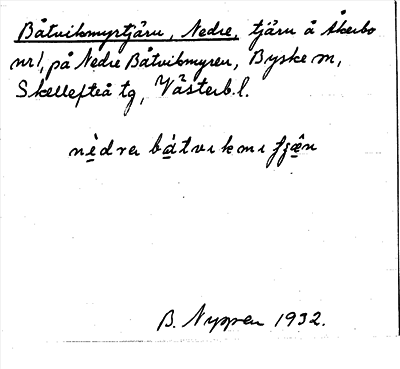 Båtvikmyrtjärn, Nedre, tjärn å Åkerbo
nr 1, på Nedre Båtvikmyren, Byske sn,
Skellefteå tg, Västerb. l.
nèdrα bátvıkmı fjæ̂n
B. Nyppen 1932.